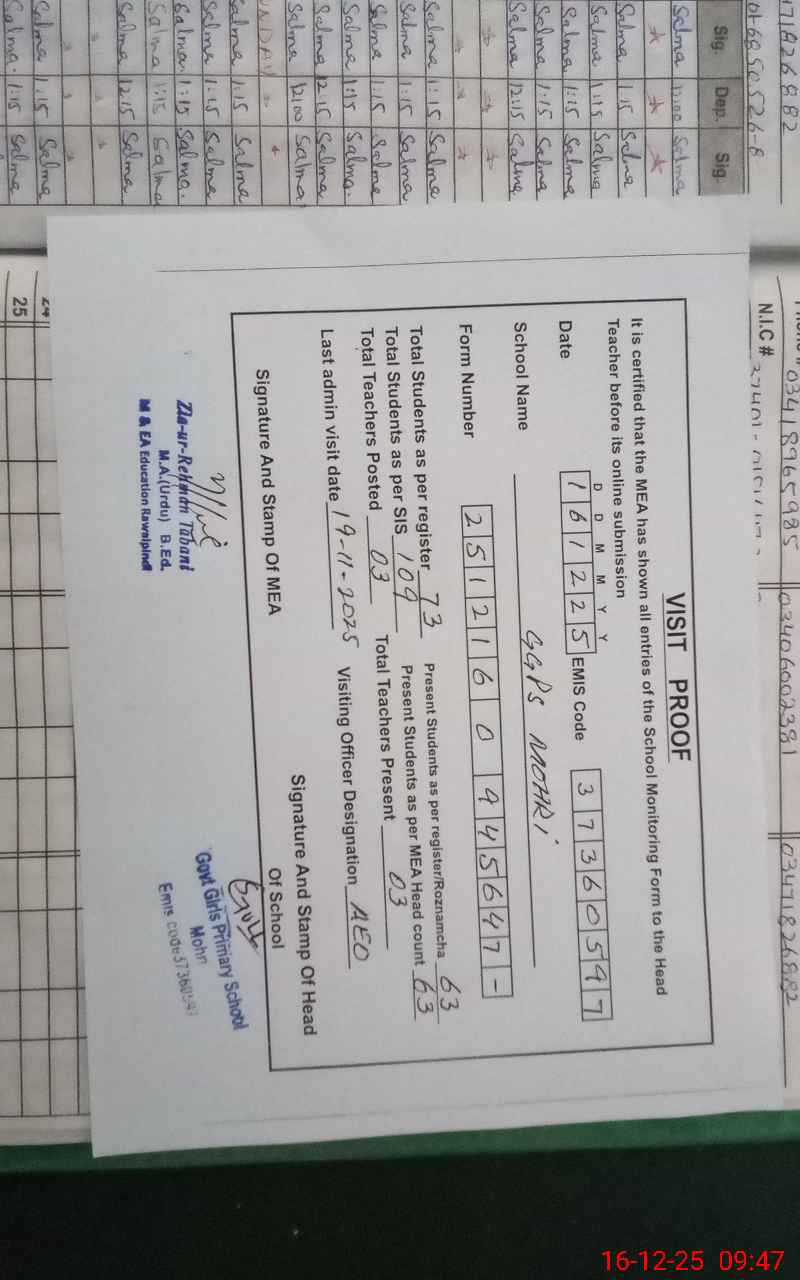 VISIT PROOF
It is certified that the MEA has shown all entries of the School Monitoring Form to the Head
Teacher before its online submission
D D M M Y Y
Date 1 6 1 2 2 5 EMIS Code 3 7 3 6 0 5 9 7
School Name GGPS MOHRI
Form Number 2 5 1 2 1 6 0 9 4 5 6 4 7 -
Total Students as per register 73 Present Students as per register/Roznamcha 63
Total Students as per SIS 109 Present Students as per MEA Head count 63
Total Teachers Posted 03 Total Teachers Present 03
Last admin visit date 19-11-2025 Visiting Officer Designation AEO
Signature And Stamp Of MEA
Signature And Stamp Of Head
Of School
Zia-ur-Rehman Tabani
M.A.(Urdu) B.Ed.
M & EA Education Rawalpindi
Govt Girls Primary School
Mohri
Emis code 373605
Sig. Dep. Sig.
Salma 12:00 Salma
Salma 1:15 Salma
Salma 1:15 Salma
Salma 1:15 Salma
Salma 1:15 Salma
Salma 12:15 Salma
Salma 1:15 Salma
Salma 1:15 Salma
Salma 1:15 Salma
Salma 1:15 Salma.
Salma 12:15 Salma
Salma 12:00 Salma
Salma 1:15 Salma
Salma 1:15 Salma
Salma 1:15 Salma.
Salma 1:15 Salma
Salma 12:15 Salma
Salma 1:15 Salma
Salma. 1:15 Salma
03418965985
03406002381
03471826882
N.I.C #
24
25
16-12-25 09:47